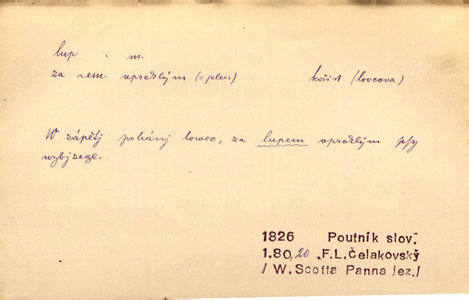 lup . m.
za -em uprašlým (= jelen) kořist (lovcova)
W zápětj pohánj lowec, za lupem uprašlým psy
wybjzege.
1826 Poutník slov.
1.80,20 "F.L.Čelakovský
/ W. Scotta Panna jez./